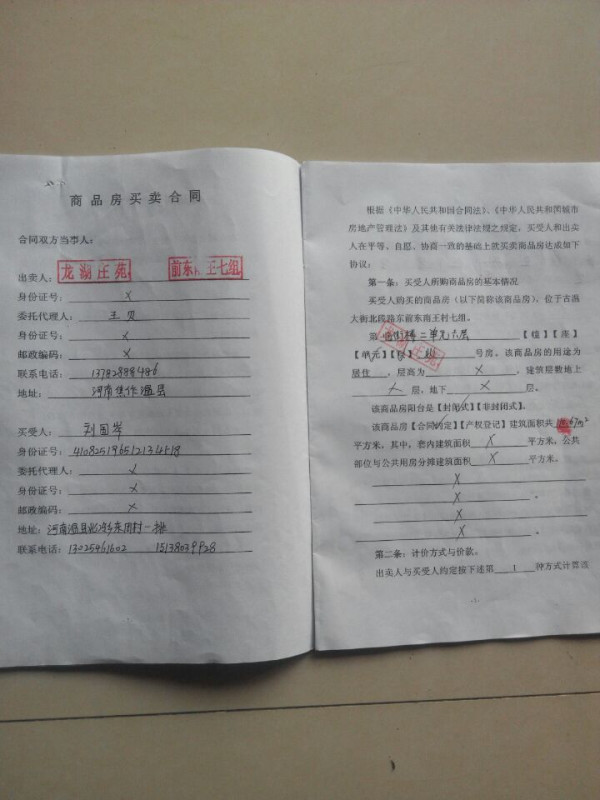 商品房买卖合同
合同双方当事人：
出卖人：龙湖庄苑 前东 王七组
身份证号：X
委托代理人：王贝
身份证号：X
邮政编码：X
联系电话：13782888486
地址：河南焦作温县
买受人：刘国岑
身份证号：
委托代理人：X
身份证号：X
邮政编码：X
地址：河南温县 乡东 村一排
联系电话：13025461602 15138039928
根据《中华人民共和国合同法》、《中华人民共和国城市
房地产管理法》及其他有关法律法规之规定，买受人和出卖
人在平等、自愿、协商一致的基础上就买卖商品房达成如下
协议：
第一条：买受人所购商品房的基本情况
买受人购买的商品房（以下简称该商品房），位于古温
大街北段路东前东南王村七组。
第 楼二单元六层 【幢】【座】
【单元】【层】 号房。该商品房的用途为
居住，层高为 X ，建筑层数地上
层，地下 X 层。
该商品房阳台是【封闭式】【非封闭式】。
该商品房【合同约定】【产权登记】建筑面积共
平方米，其中，套内建筑面积 X 平方米，公共
部位与公共用房分摊建筑面积 X 平方米。
X
X 。
X 。
X 。
第二条：计价方式与价款。
出卖人与买受人约定按下述第 1 种方式计算该
1